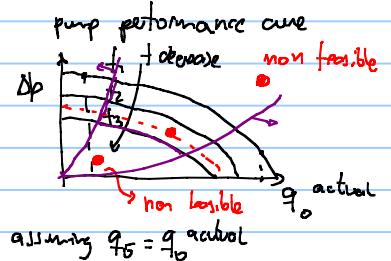 pump performance curve
f decrease
non feasible
Δp
f1
f2
f3
q_o actual
non feasible
assuming q_5 = q_o actual